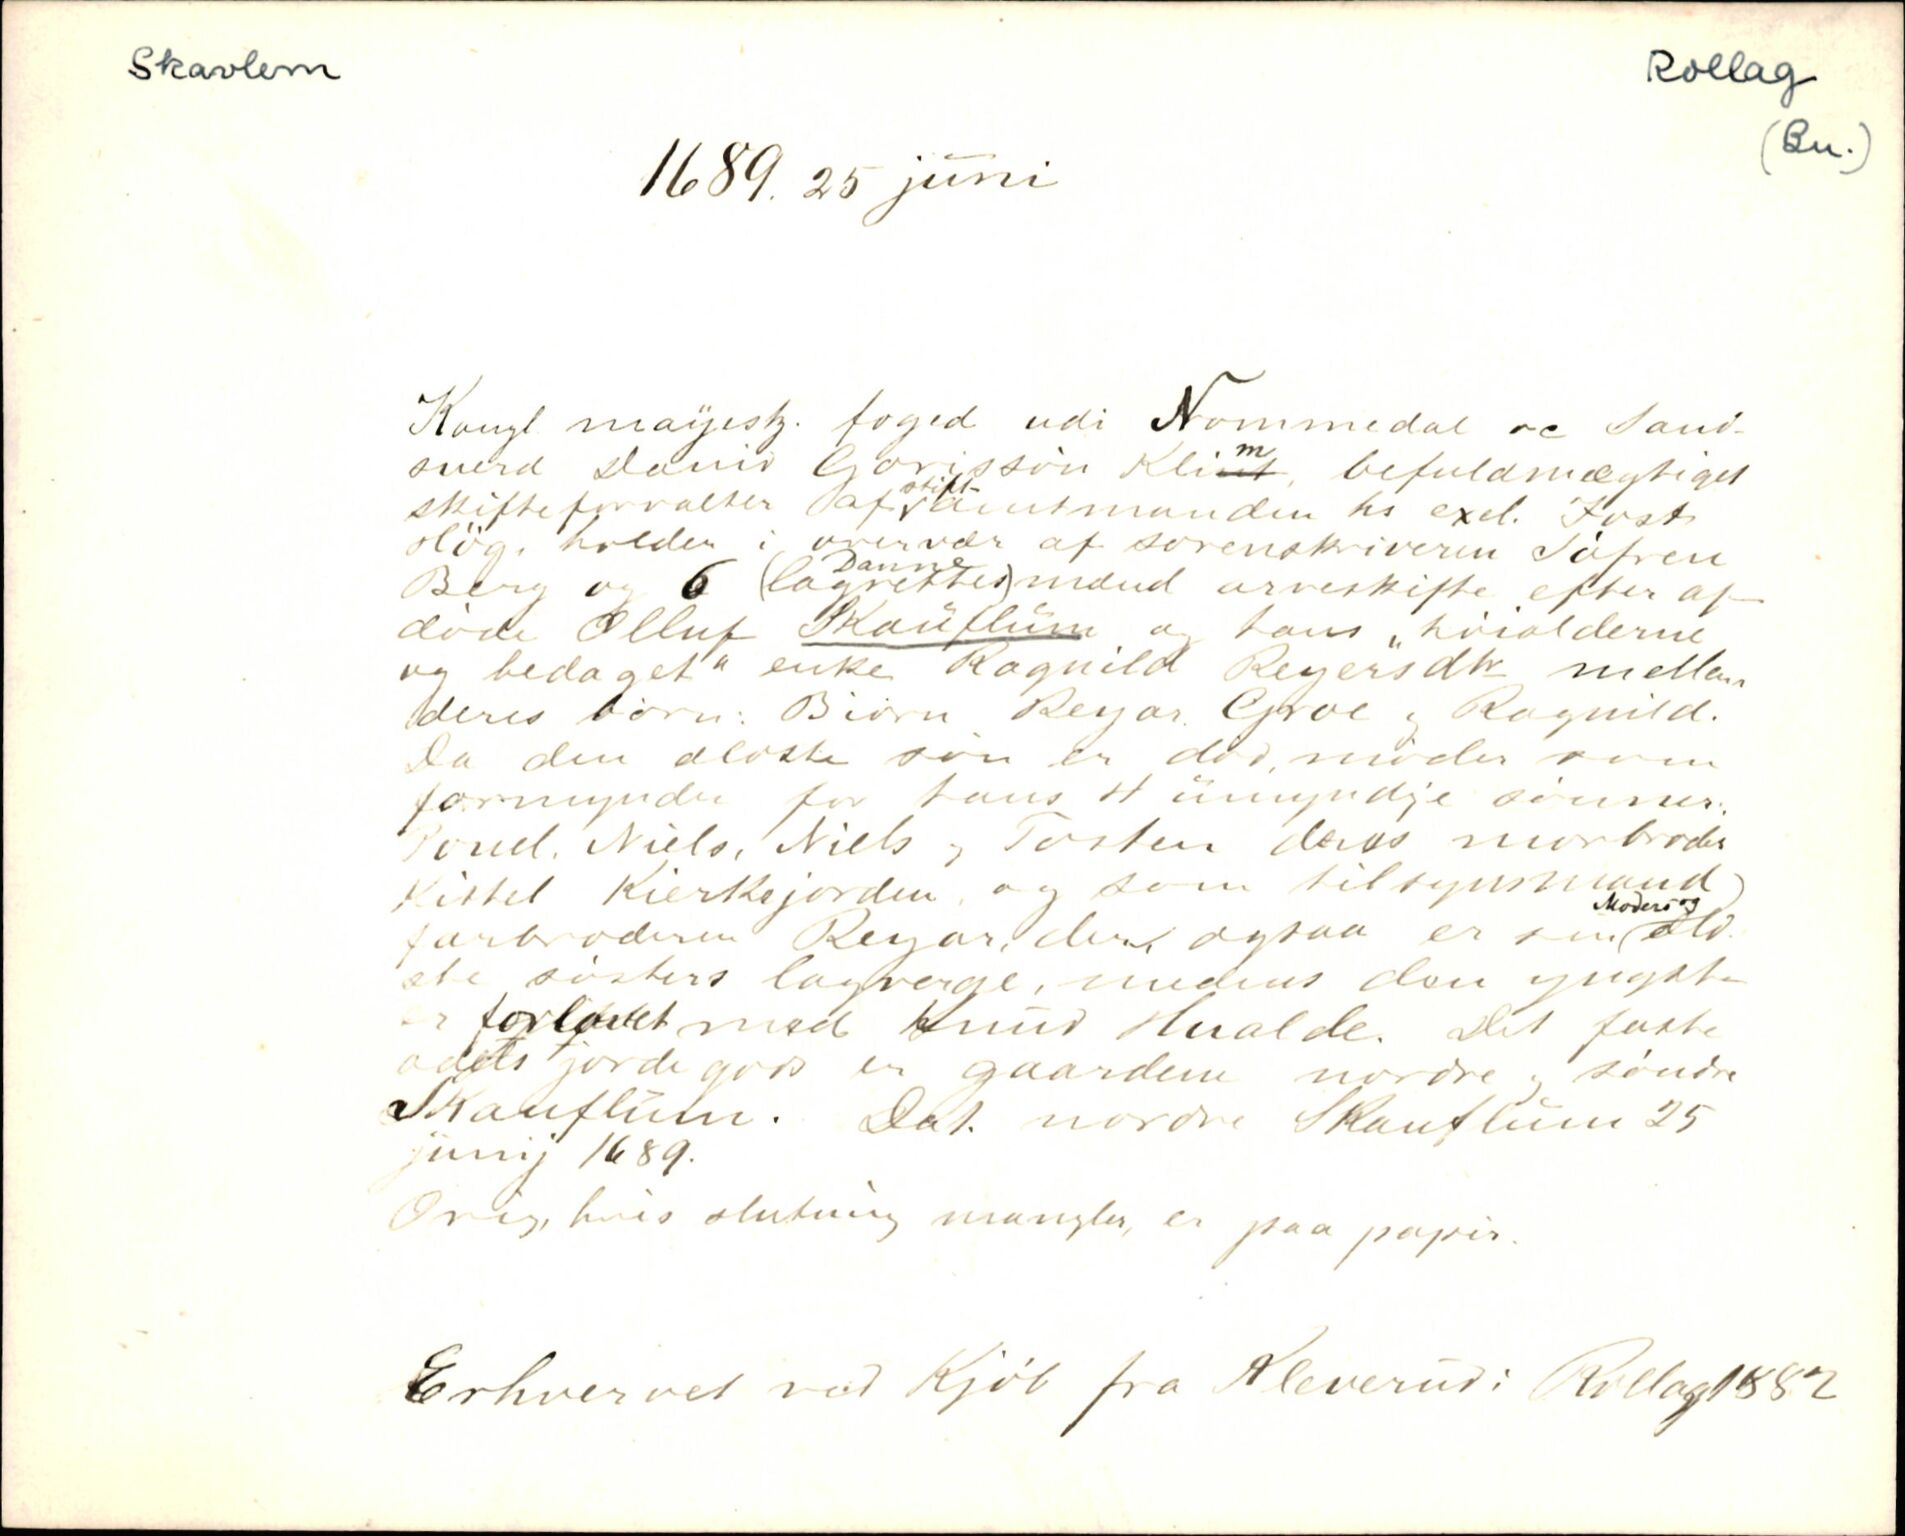 Skavlem
Rollag
(Bu.)
1689. 25 juni
Kongl mayestz. foged udi Nommedal oc Sand-
suerd Danid Gorissön Klim, befuldmægtiget
skifteforvalter af stiftamtmanden hs excl. Just
Høg, holder i overvær af sorenskriveren Söfren
Berg og 6 (lagrettes) Danne mænd arveskifte efter af-
döde Olluf Skaüflüm og hans "höialderne
og bedaget" enke Ragnild Reyersdtr mellem
deres börn: Biörn Reyar Groe og Ragnild.
Da den ældste sön er död, möder som
formynder for hans 4 ümyndije sönner:
Pouel, Niels, Niels og Tosten deres morbroder
Kittel Kierkejorden, og som tilsynsmand
farbroderen Reyar, der ogsaa er sin (Moders og æld-
ste sösters lagverge, medens den yngste
er forlovet med Knud Hualde. Det faste
odels jordegods er gaardene nordre og söndre
Skauflüm. Dat. nordre Skauflüm 25
junij 1689.
Orig, hvis slutning mangler, er paa papir.
Erhvervet ved Kjöb fra Kleverud i Rollag 1882